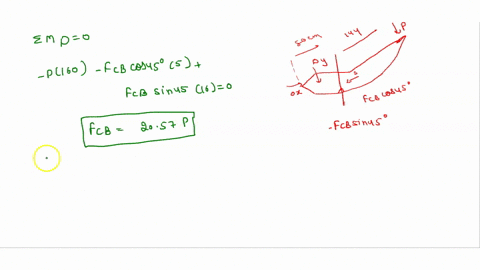 ΣM D=0
-P(160) -FCB cos45° (5) +
FCB sin45 (16)=0
FCB = 20.57 P
50cm
144
P
Dy
Dx
FCB cos45°
-FCB sin45°